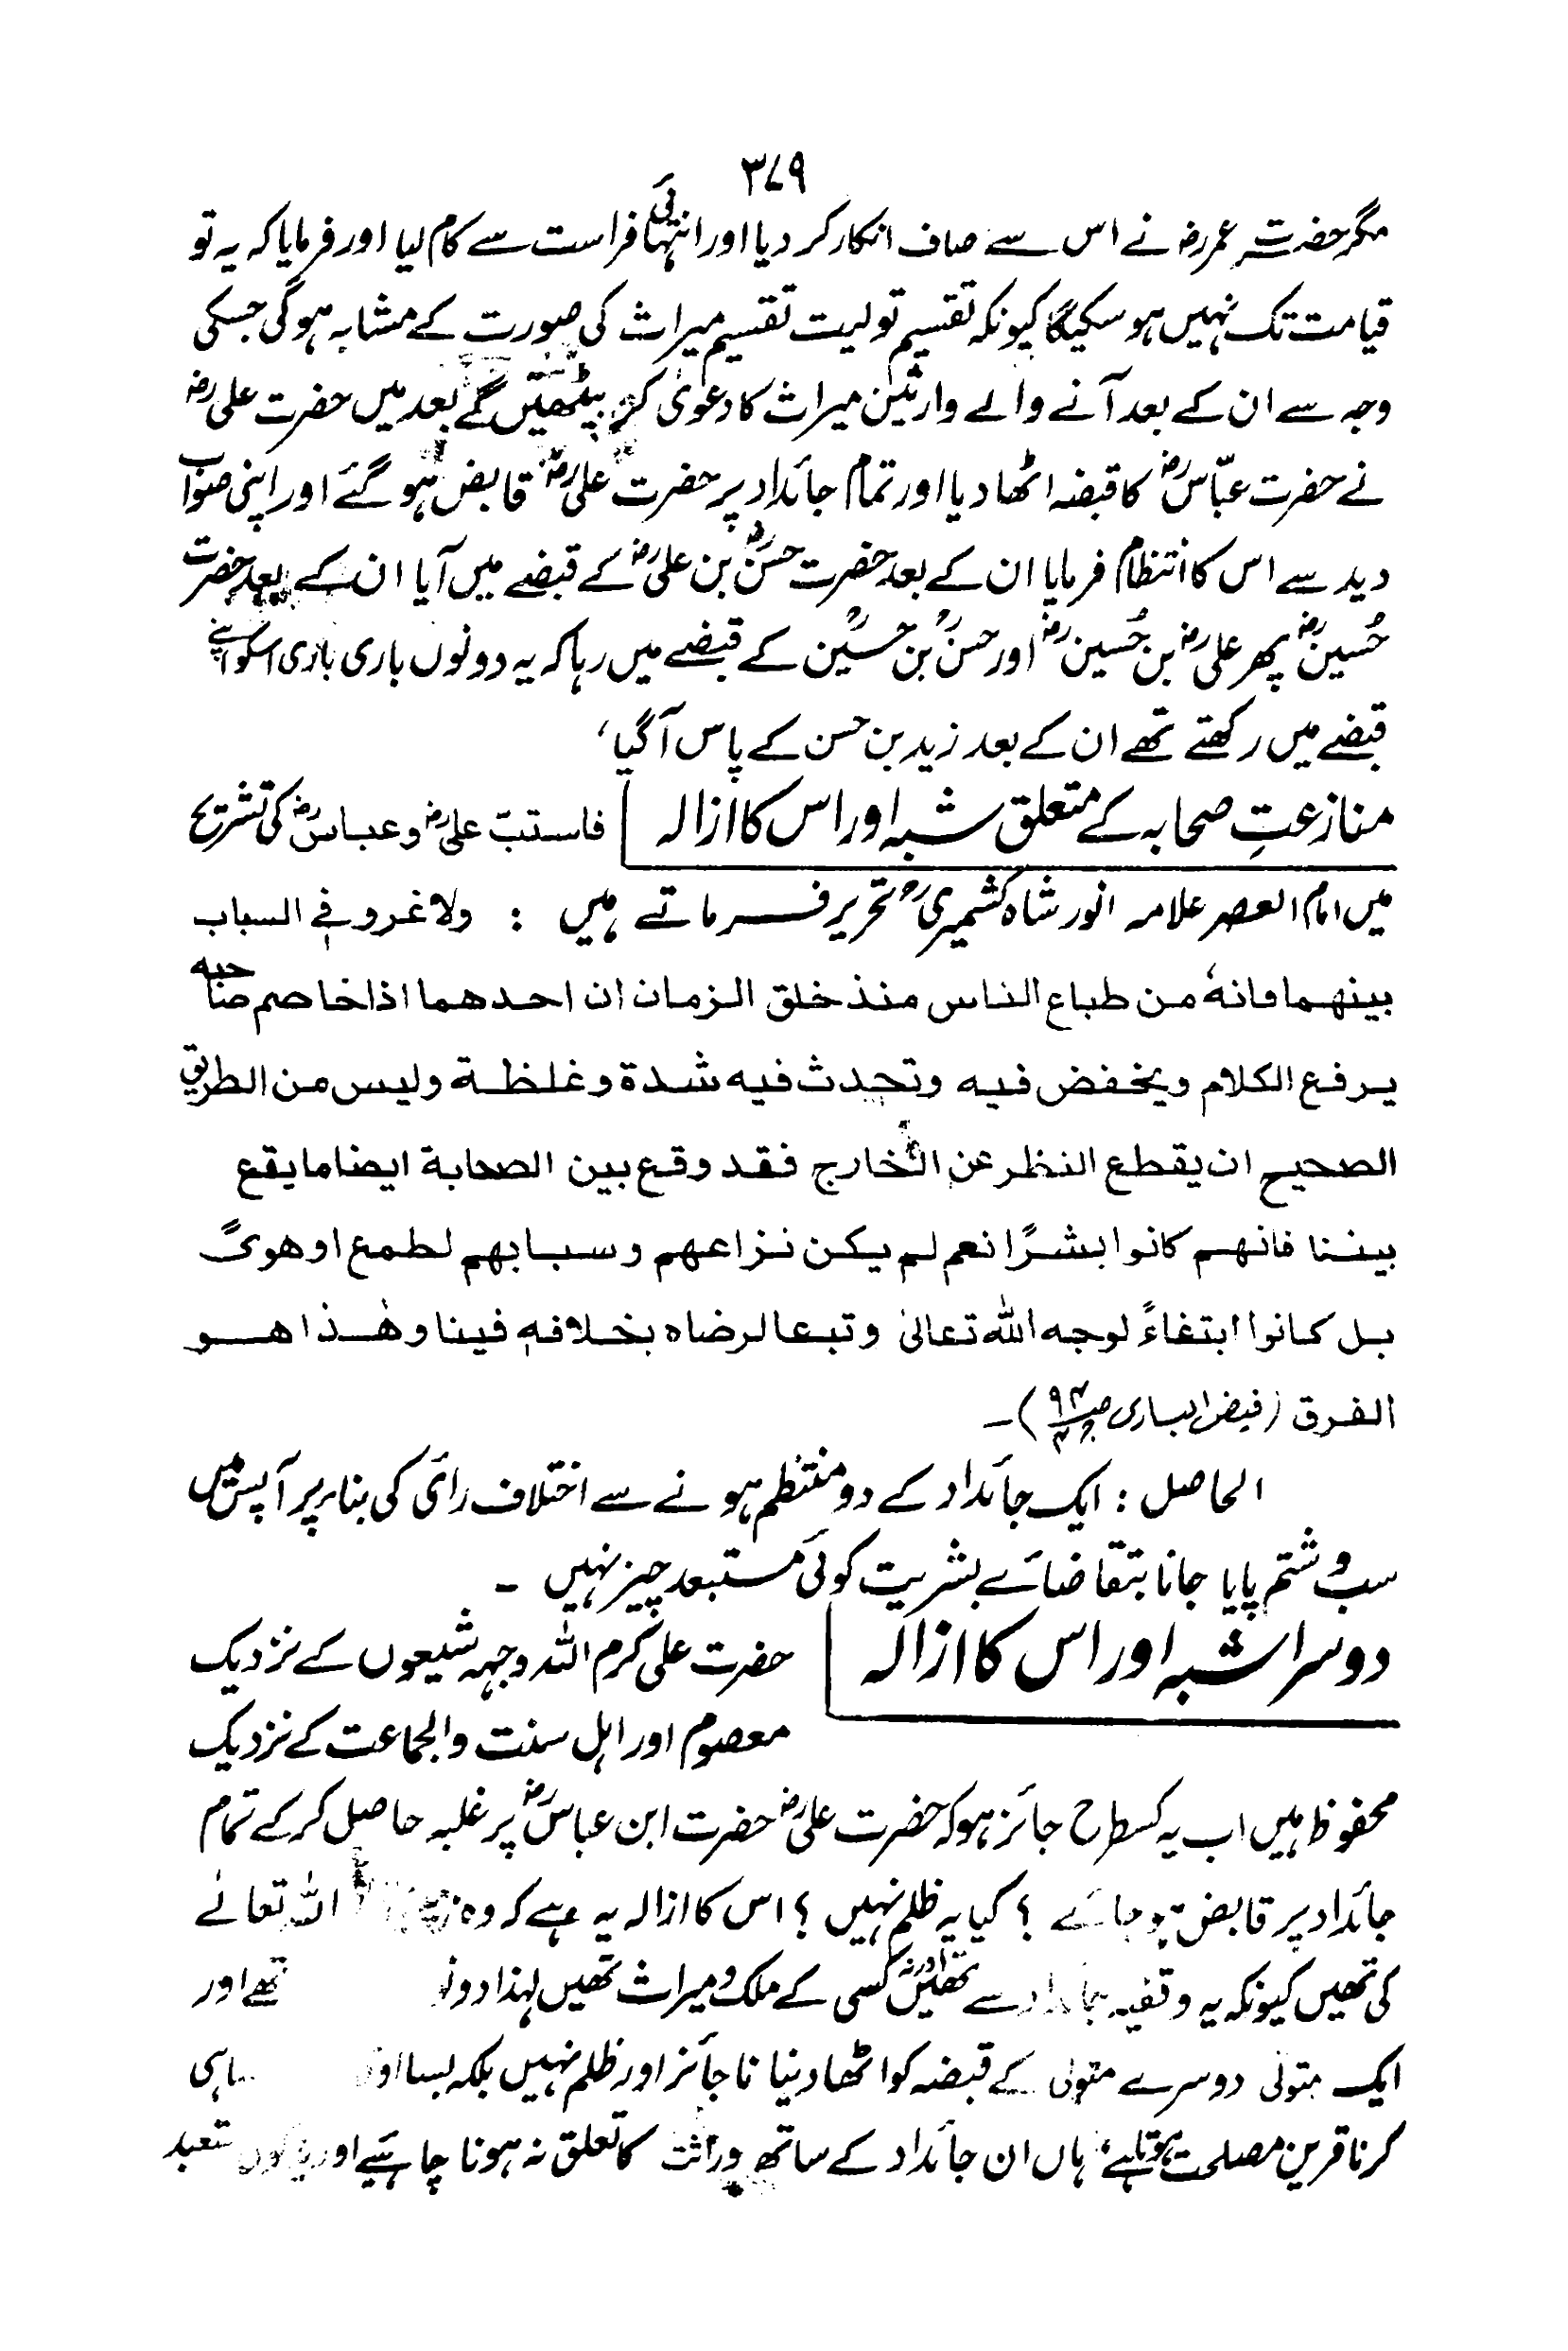 ۳۷۹
مگر حضرت عمرؓ نے اس سے صاف انکار کر دیا اور انتہائی فراست سے کام لیا اور فرمایا کہ یہ تو
قیامت تک نہیں ہو سکیگا کیونکہ تقسیم تولیت تقسیم میراث کی صورت کے مشابہ ہوگی جسکی
وجہ سے ان کے بعد آنے والے وارثین میراث کا دعویٰ کر بیٹھیں گے بعد میں حضرت علیؓ
نے حضرت عبّاسؓ کا قبضہ اٹھا دیا اور تمام جائداد پر حضرت علیؓ قابض ہو گئے اور اپنی صواب
دید سے اس کا انتظام فرمایا ان کے بعد حضرت حسنؓ بن علیؓ کے قبضے میں آیا ان کے بعد حضرت
حُسینؓ پھر علیؓ بن حُسینؓ اور حسنؒ بن حسینؒ کے قبضے میں رہا کہ یہ دونوں باری باری اسکو اپنے
قبضے میں رکھتے تھے ان کے بعد زید بن حسن کے پاس آگیا ،
منازعتِ صحابہ کے متعلق شبہ اور اس کا ازالہ فاستبّ علیؓ وعباسؓ کی تشریح
میں امام العصر علامہ انور شاہ کشمیریؒ تحریر فرماتے ہیں : ولا غرو فی السباب
بینهما فانهٗ من طباع الناس منذ خلق الزمان ان احدهما اذا خاصم صاحبه
یرفع الکلام ویخفض فیه وتحدث فیه شدة وغلظة ولیس من الطریق
الصحیح ان یقطع النظر عن الخارج فقد وقع بین الصحابة ایضا ما یقع
بیننا فانهم کانوا بشرًا نعم لم یکن نزاعهم وسبابهم لطمع اوهویً
بل کانوا ابتغاءً لوجه الله تعالیٰ وتبعا لرضاه بخلافه فینا وهٰذا هو
الفرق (فیض الباری ص۹۴)۔
الحاصل : ایک جائداد کے دو منتظم ہونے سے اختلاف رائ کی بنا پر آپس میں
سب و شتم پایا جانا بتقاضائے بشریت کوئی مستبعد چیز نہیں ۔
دوسرا شبہ اور اس کا ازالہ حضرت علی کرم اللہ وجہہ شیعوں کے نزدیک
معصوم اور اہل سنت والجماعت کے نزدیک
محفوظ ہیں اب یہ کسطرح جائز ہو کہ حضرت علیؓ حضرت ابن عباسؓ پر غلبہ حاصل کرکے تمام
جائداد پر قابض ہو جائے ؟ کیا یہ ظلم نہیں ؟ اس کا ازالہ یہ ہے کہ وہ اللہ تعالےٰ
کی تھیں کیونکہ یہ وقفیہ جائداد سے تھیں اور نہ کسی کے ملک و میراث تھیں لہٰذا تھے اور
ایک متولی دوسرے متولی کے قبضہ کو اٹھا دینا ناجائز اور ظلم نہیں بلکہ بسا
کرنا قرین مصلحت ہوتا ہے، ہاں ان جائداد کے ساتھ وراثت کا تعلق نہ ہونا چاہئیے اور